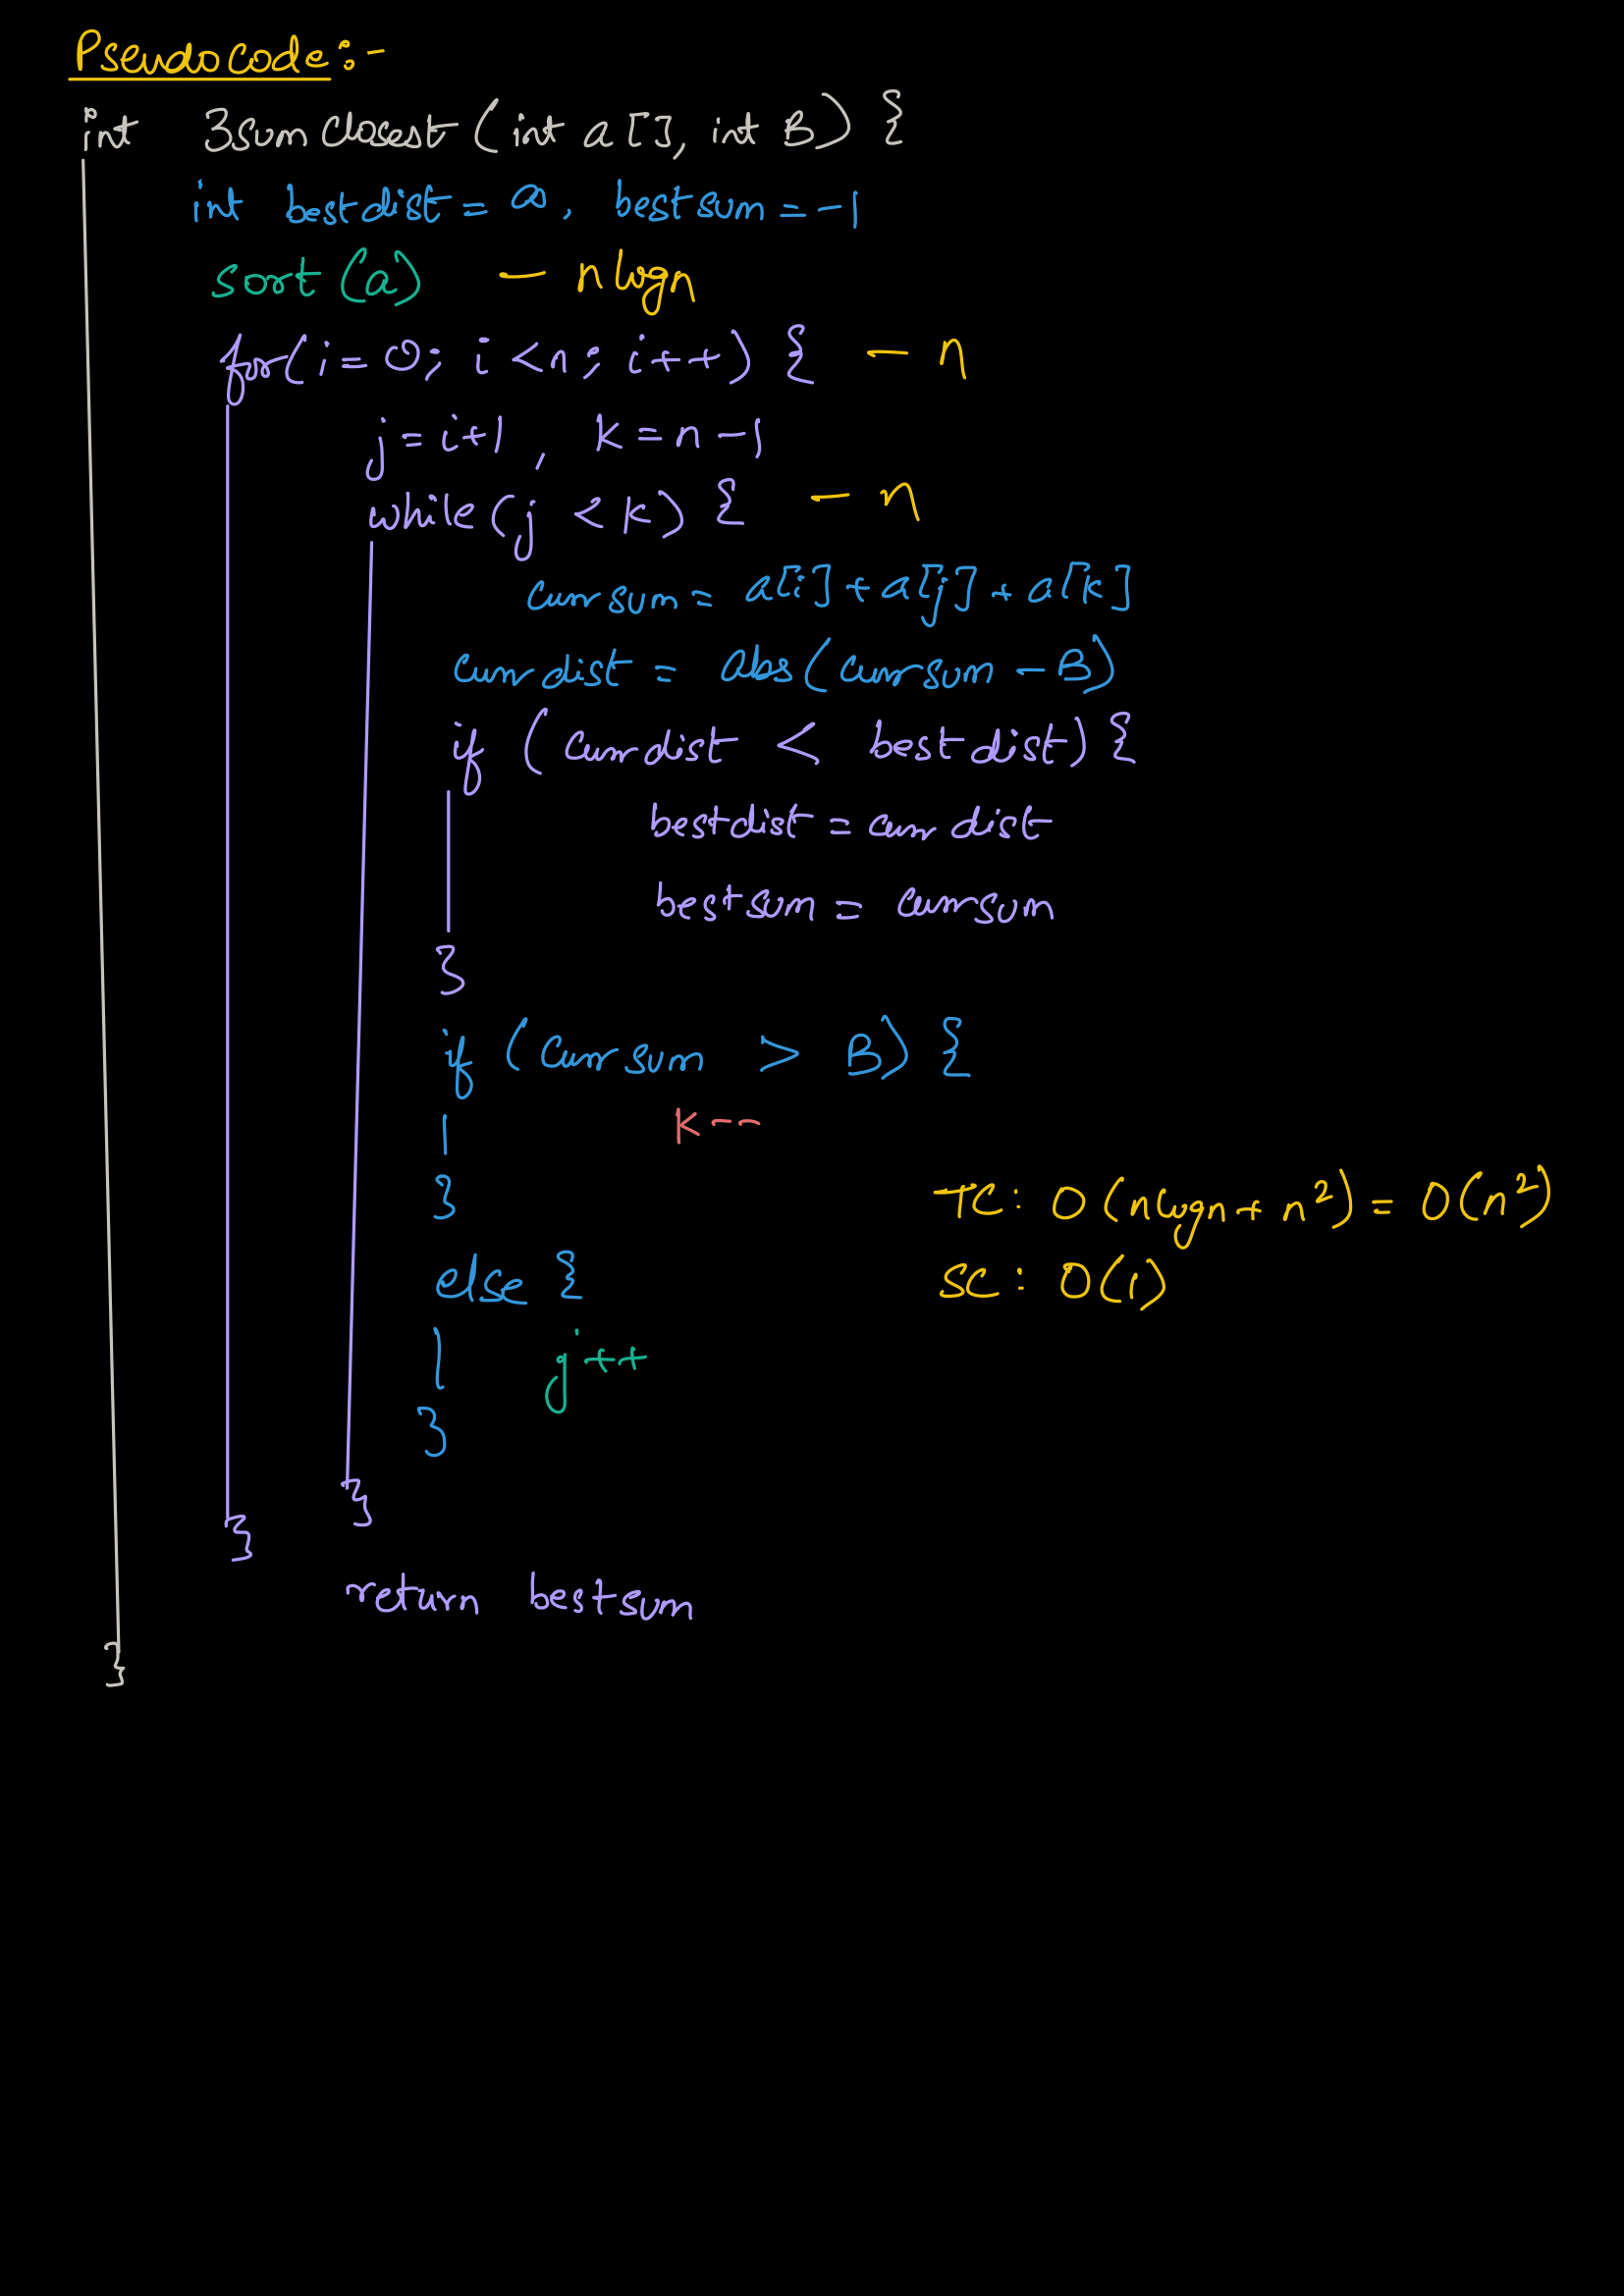 Pseudocode:-
int 3sum Closest (int a [], int B) {
int bestdist = ∞, bestsum = -1
sort (a) - n logn
for( i = 0; i < n; i++) { - n
j = i+1, k = n - 1
while (j < k) { - n
currsum = a[i] + a[j] + a[k]
currdist = abs (currsum - B)
if (currdist < bestdist) {
bestdist = currdist
bestsum = currsum
}
if (currsum > B) {
k--
}
TC: O (nlogn + n²) = O(n²)
else {
SC: O(1)
j++
}
}
}
return bestsum
}